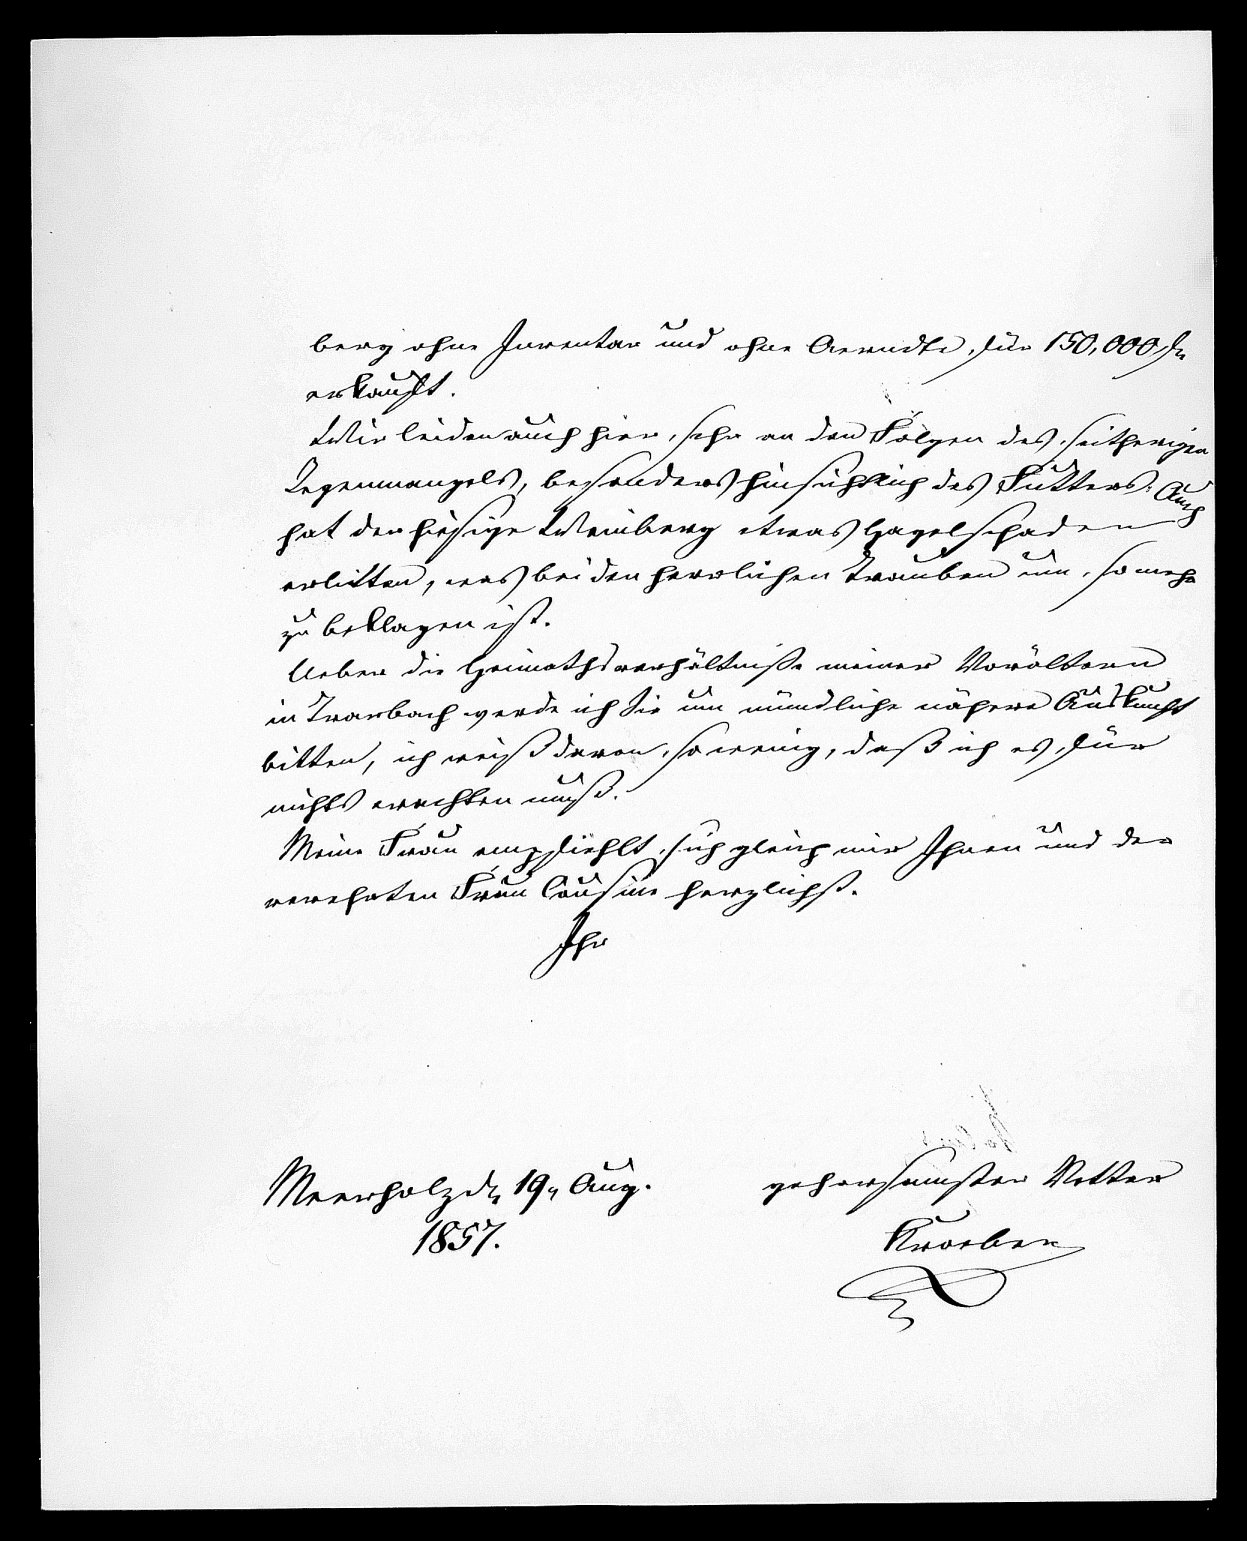 berg ohne Inventar und ohne Aerndte, für 150,000 fl
erkauft.
Wir leiden auch hier sehr an den Folgen des seitherigen
Regenmangels, besonders hinsichtlich des Futters. Auch
hat der hiesige Weinberg etwas Hagelschaden
erlitten, was bei den herrlichen Trauben um so mehr
zu beklagen ist.
Ueber die Heimathsverhältniße meiner Vorältern
in Trarbach werde ich Sie um mündliche nähere Auskunft
bitten, ich weiß davon so wenig, daß ich es für
nichts erachten muß.
Meine Frau empfiehlt sich gleich mir Ihnen und der
verehrten Frau Cousine herzlichst.
Ihr
Meerholz d. 19. Aug.
1857.
gehorsamster Vetter
Kroeber